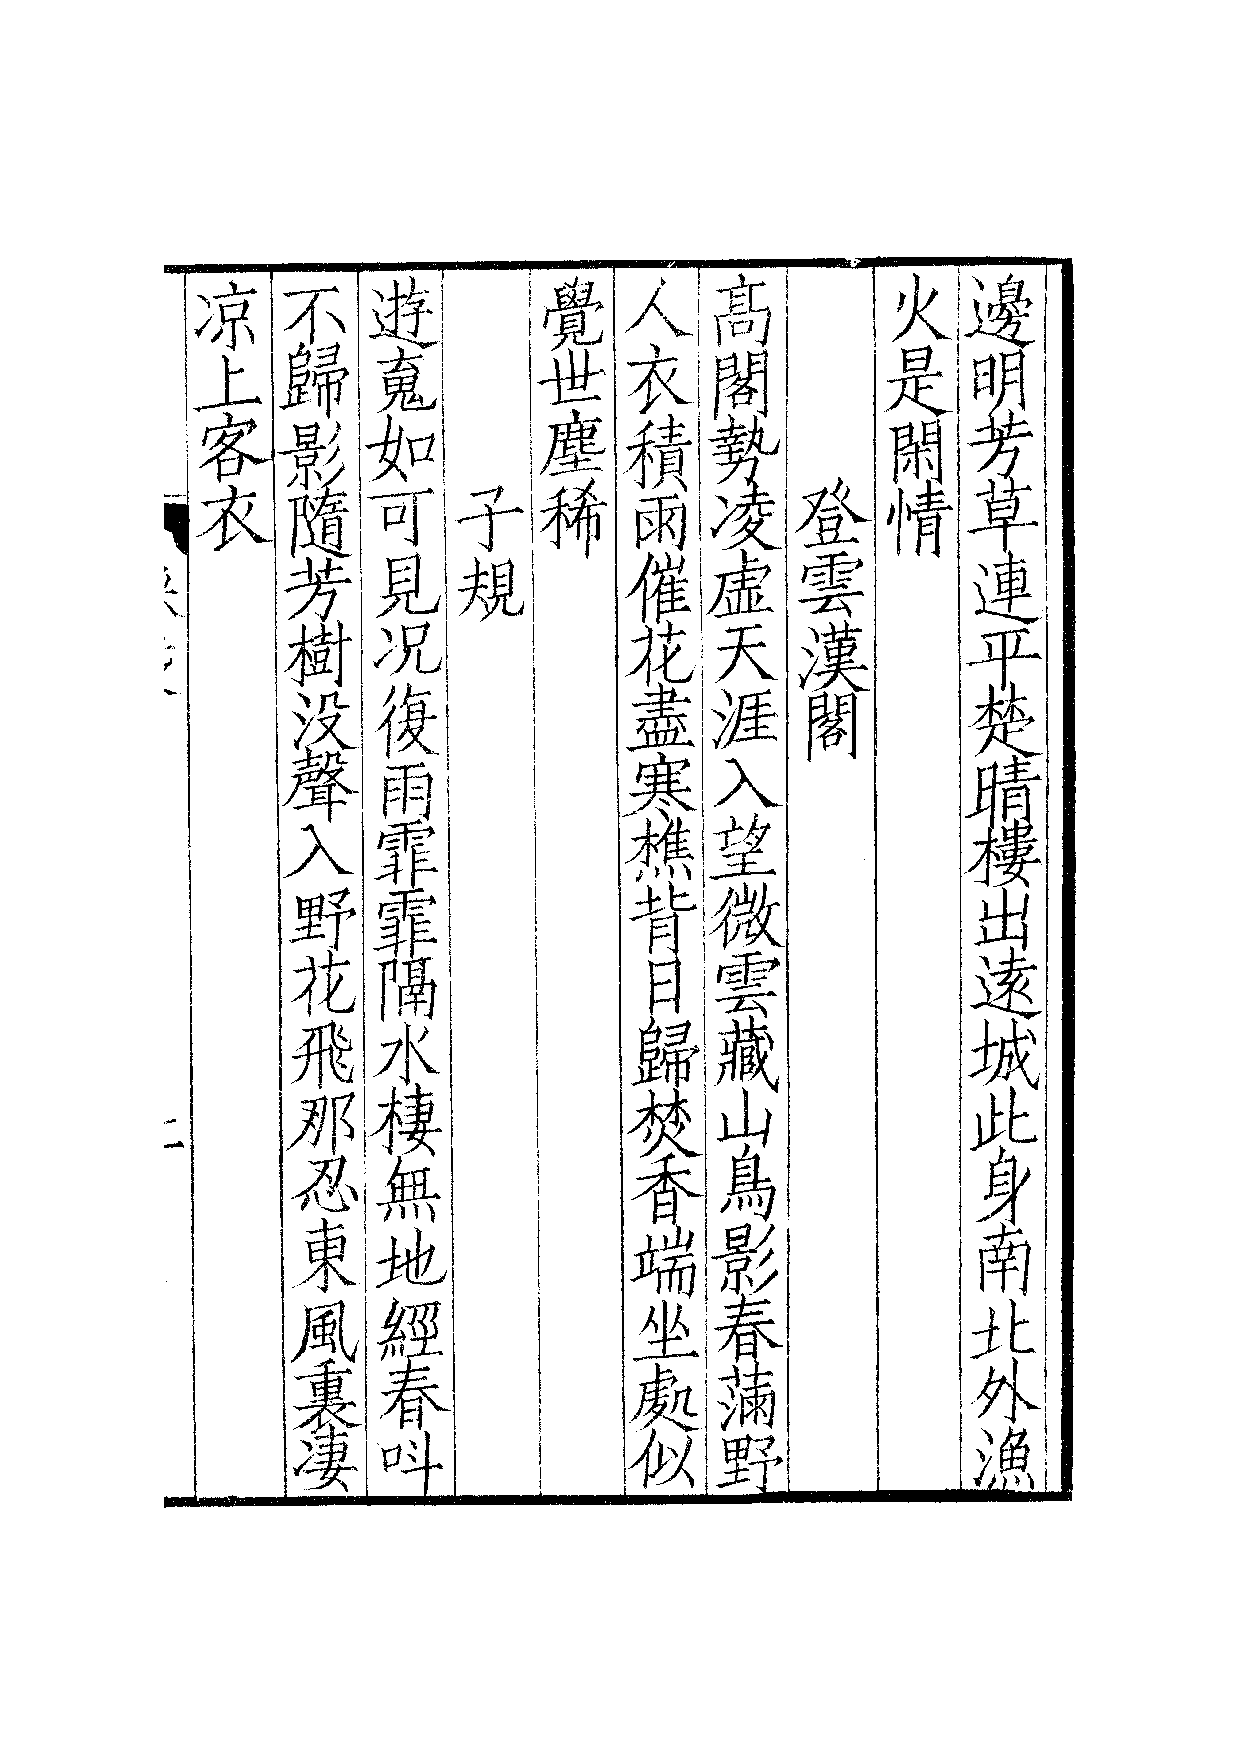 邊明芳草連平楚晴樓出逺城此身南北外漁
火是閑情
登雲漢閣
髙閣勢凌虛天涯入望微雲藏山鳥影春蒲野
人衣積雨催花盡寒樵背日歸焚香端坐處似
覺世塵稀
子規
遊蒐如可見况復雨霏霏隔水棲無地經春呌
不歸影隨芳樹没聲入野花飛那忍東風裏凄
凉上客衣